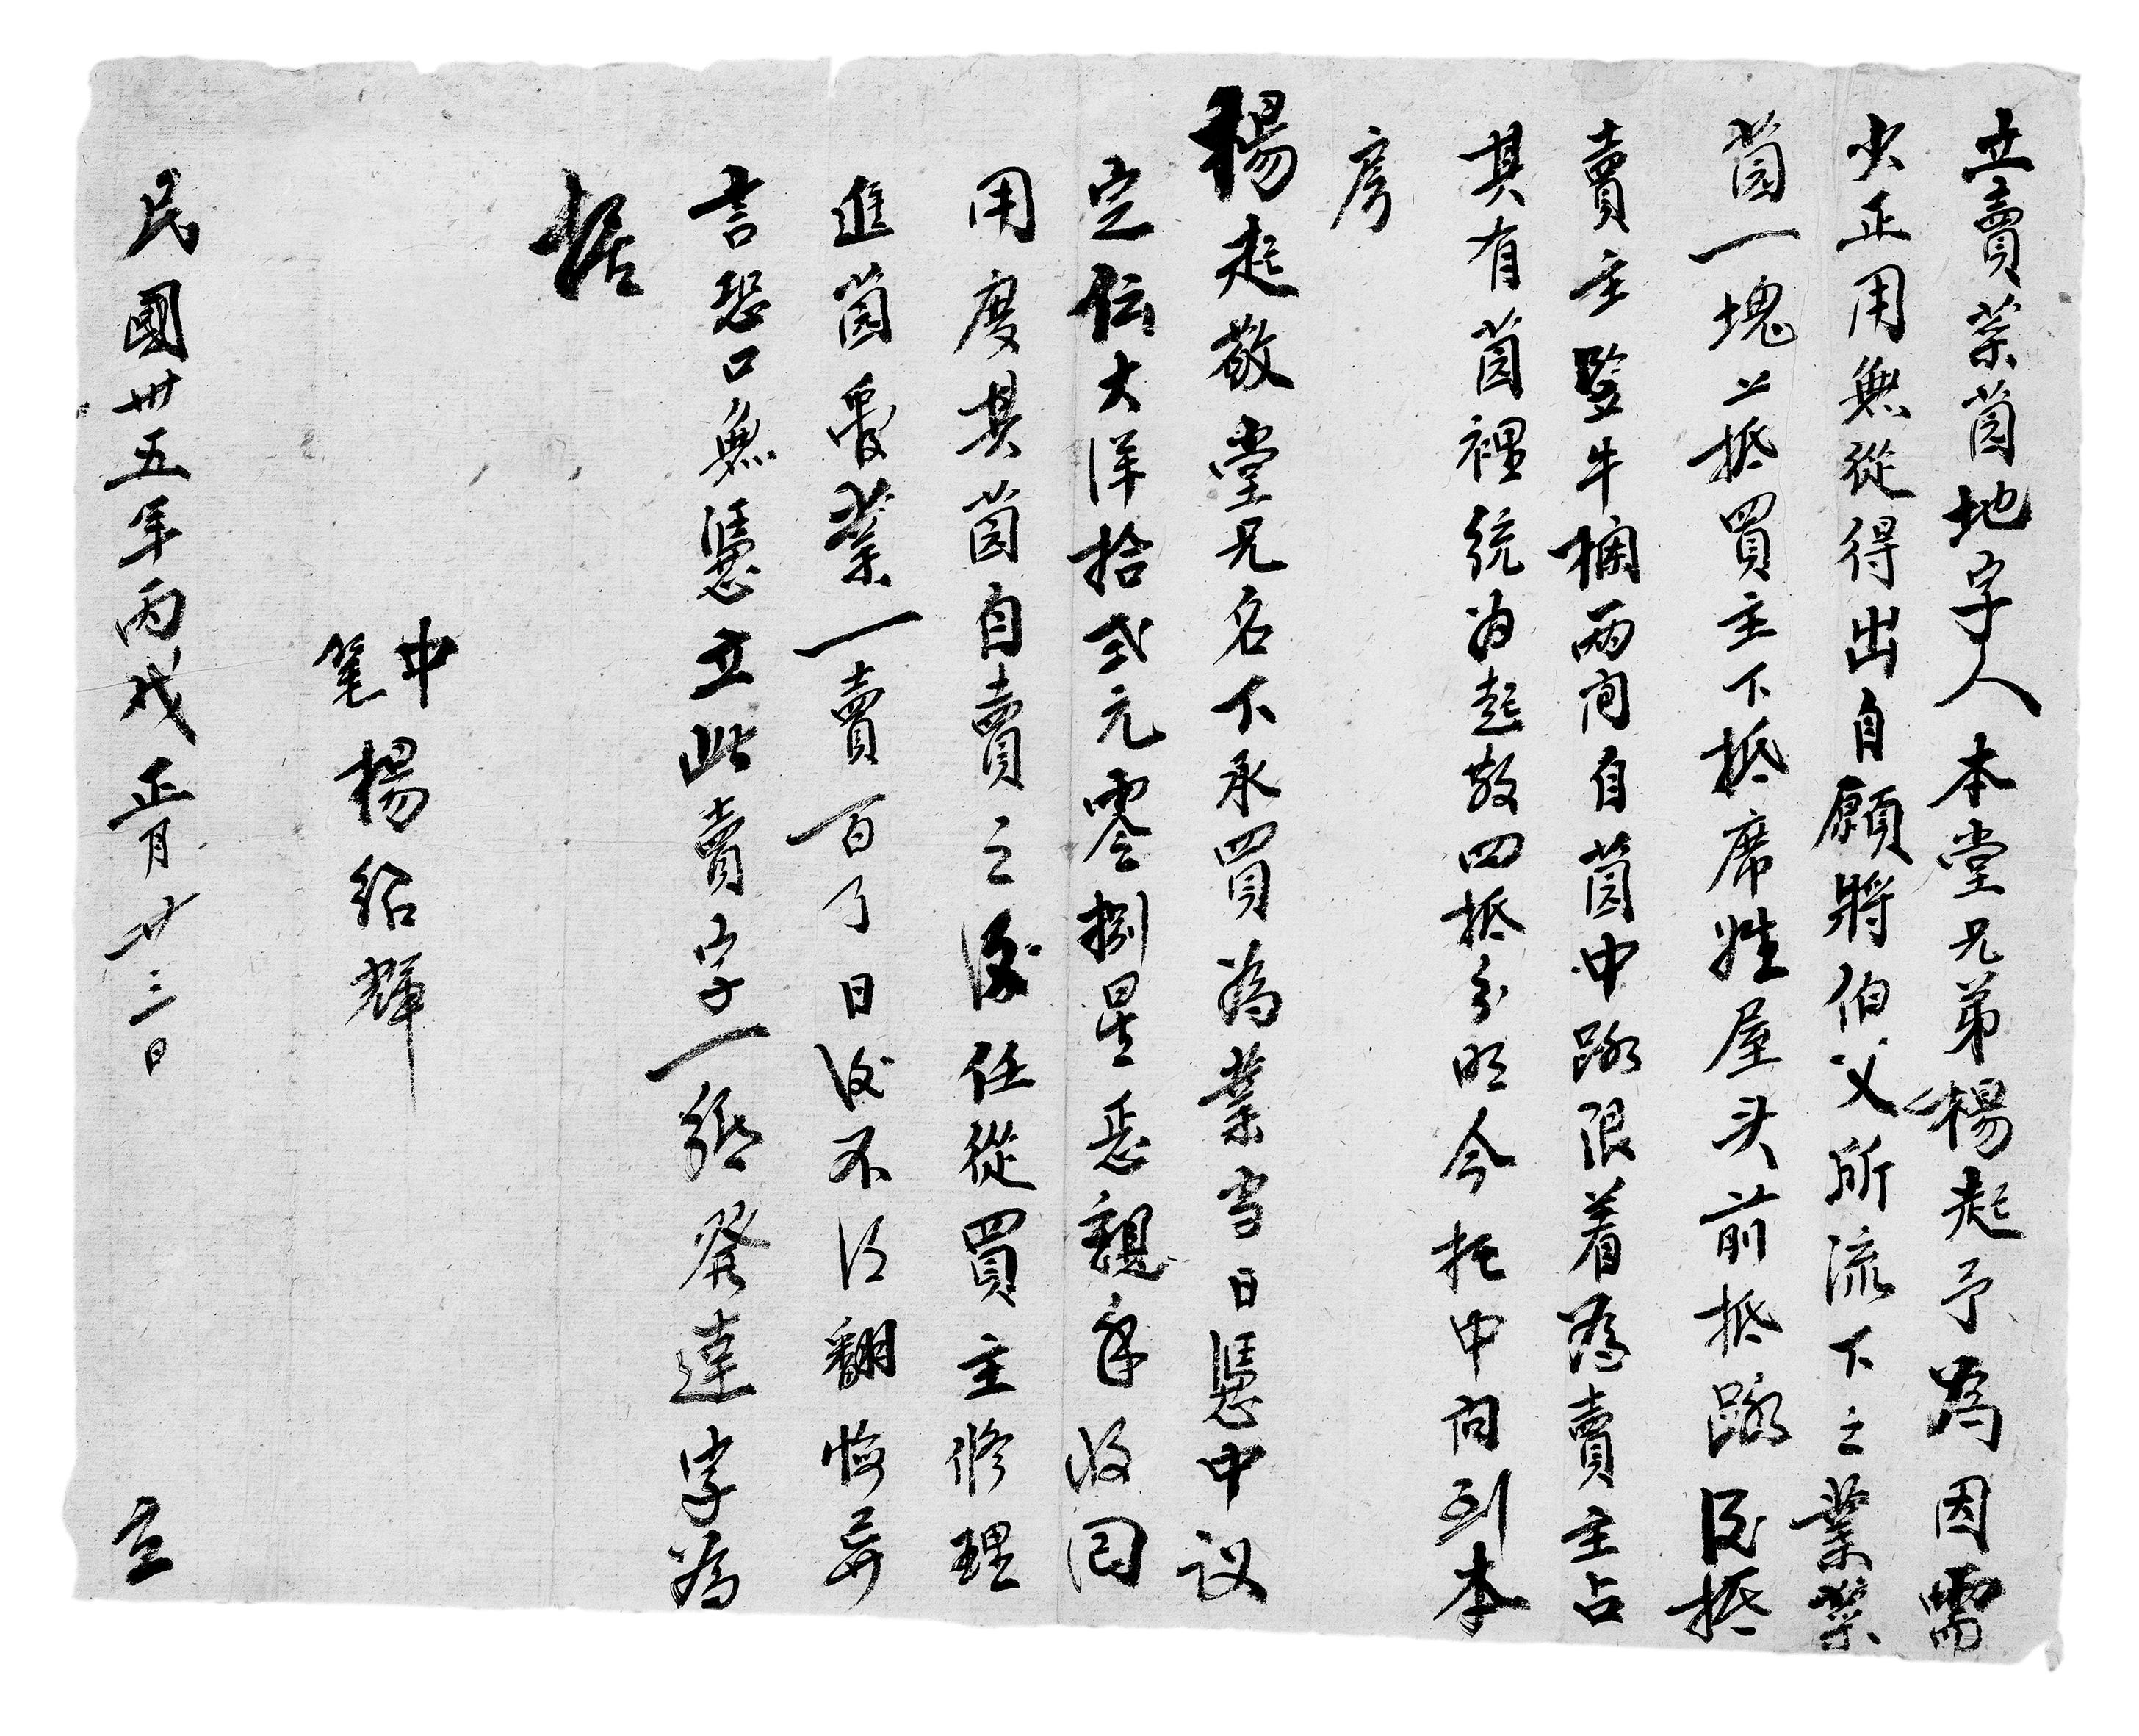 立賣菜茵地字人本堂兄弟楊起予為因需
少正用無從得出自願將伯父所流下之業菜
茵一塊上抵買主下抵席姓屋头前抵路后抵
賣主竪牛欄兩间自茵中路限着為賣主占
其有茵裡統為起敬四抵分明今托中向到本
房
楊起敬堂兄名下永買為業当日憑中议
定伝大洋拾弍元零捌星悉親手收囘
用度其茵自賣之後任從買主修理
進茵受業一賣百了日後不得翻悔異
言恐口無憑立此賣字一紙發達字為
據
中
笔 楊紹輝
民國卅五年丙戌正月廿三日 立